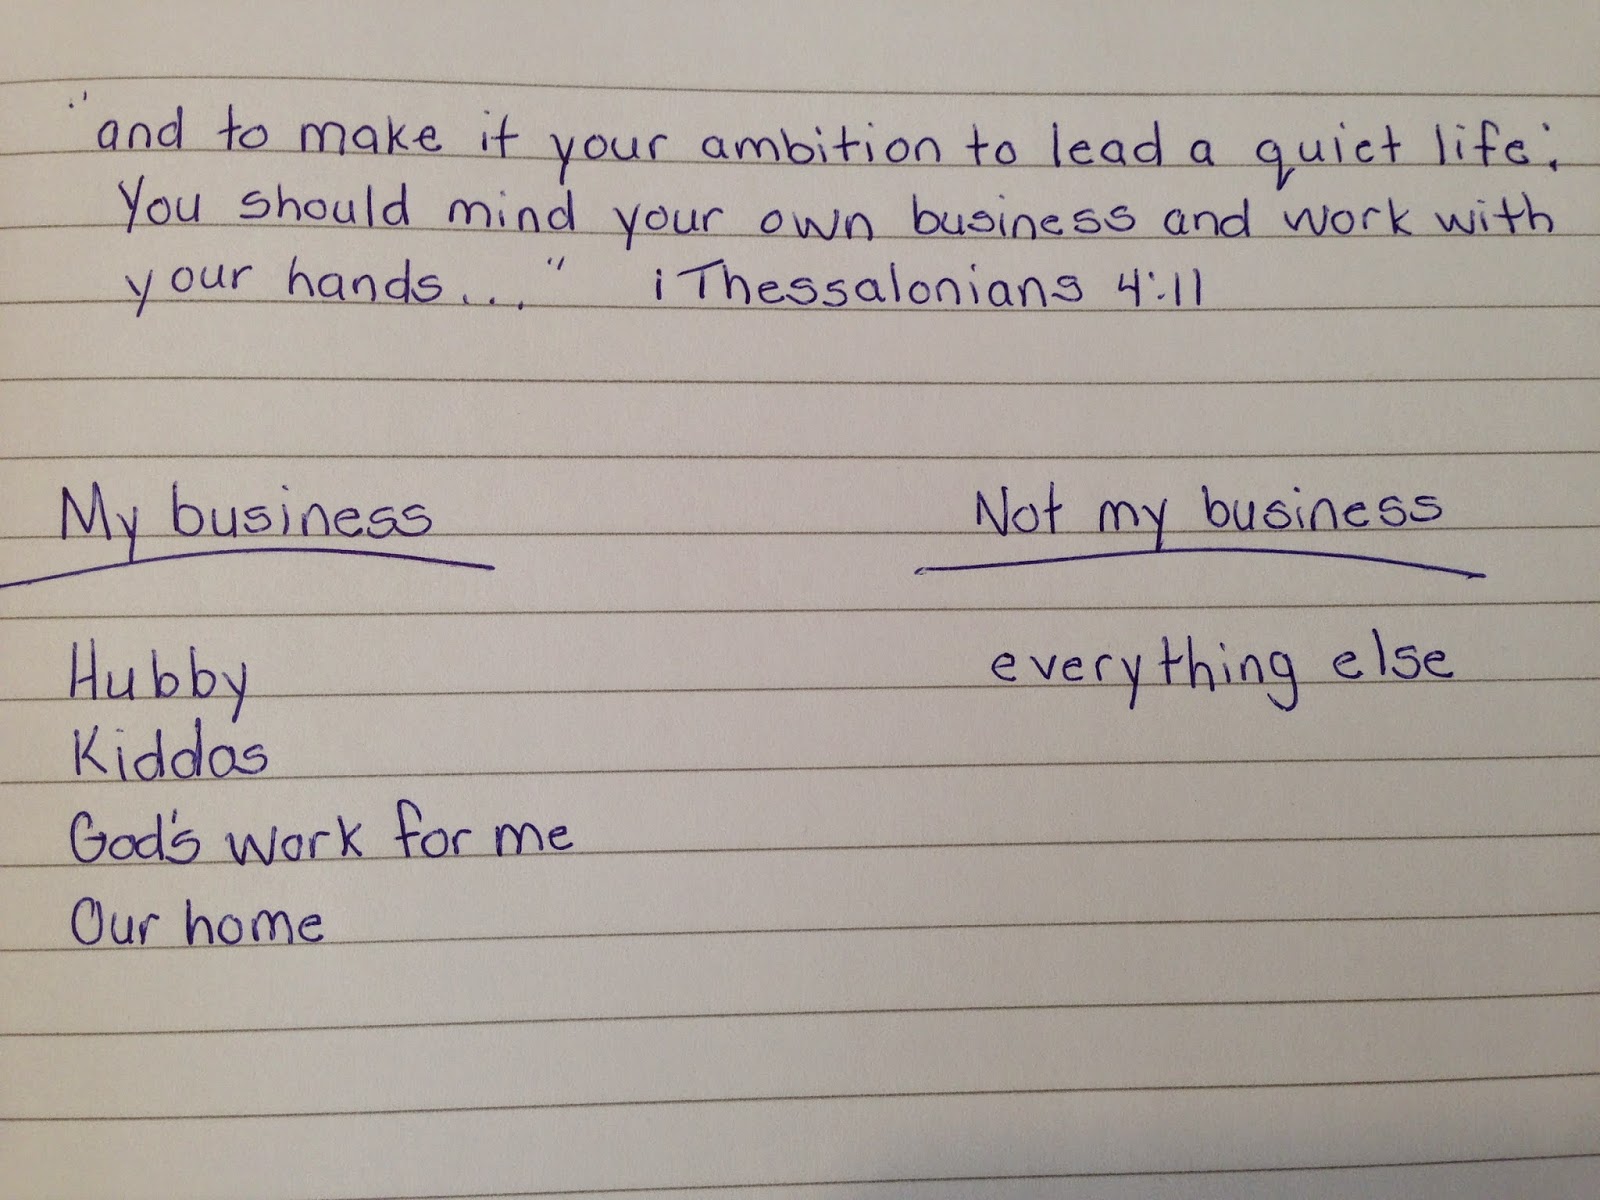 "and to make it your ambition to lead a quiet life:
You should mind your own business and work with
your hands..." 1 Thessalonians 4:11
My business Not my business
Hubby everything else
Kiddos
God's work for me
Our home